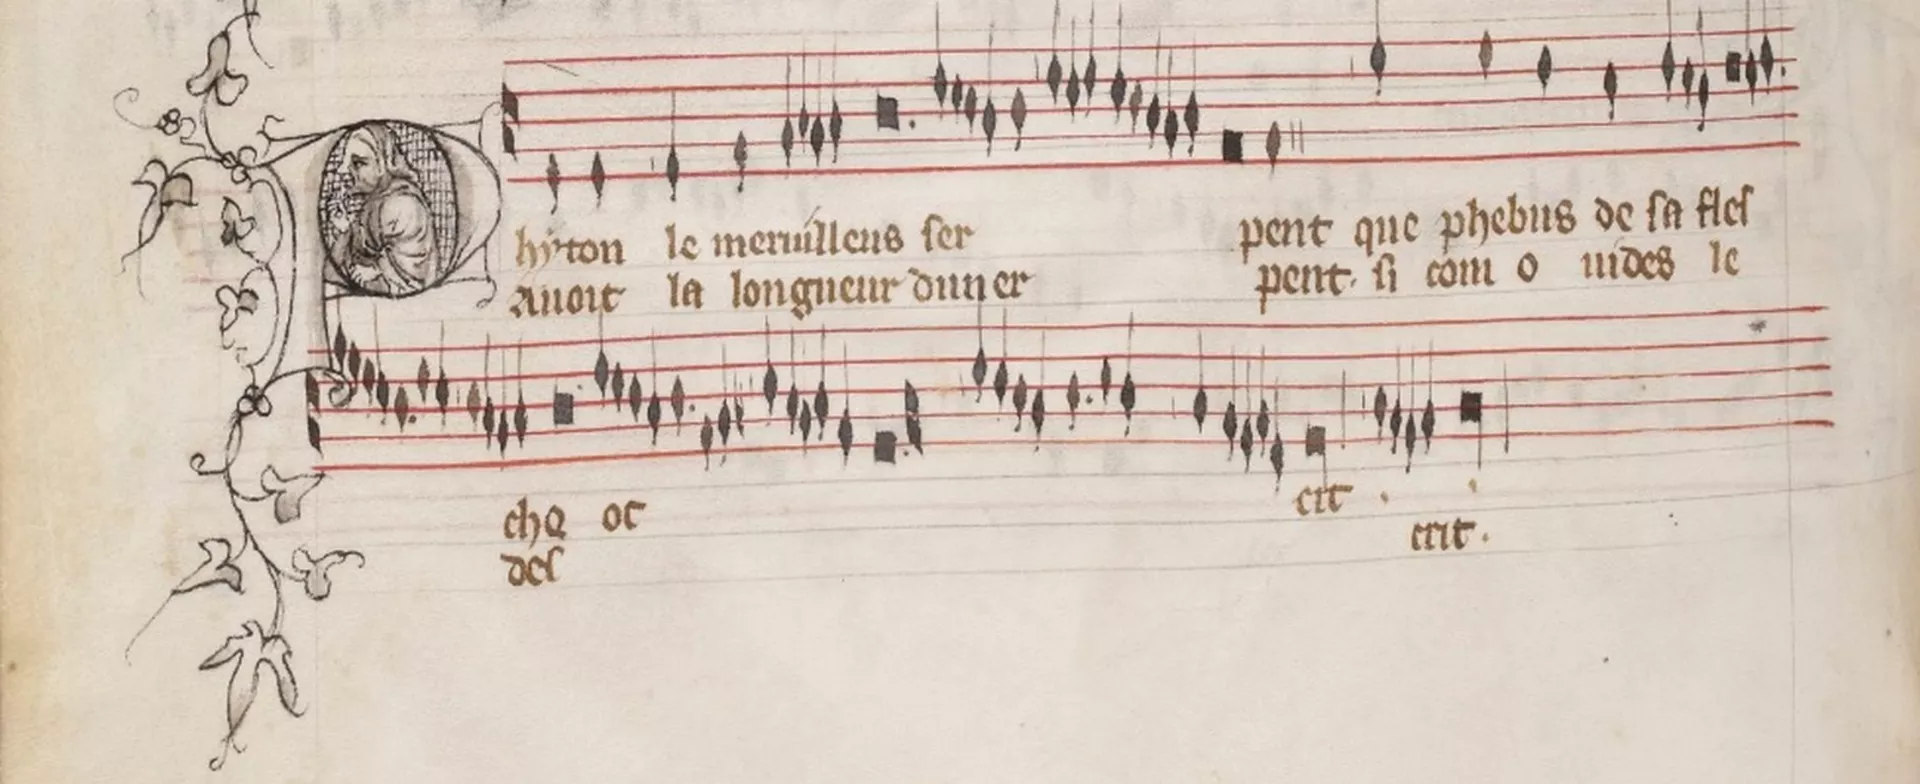 Phyton le meruilleus ser pent que phebus de sa fles
Auoit la longueur dun er pent. si com o uides le
che oc cit .
des crit.